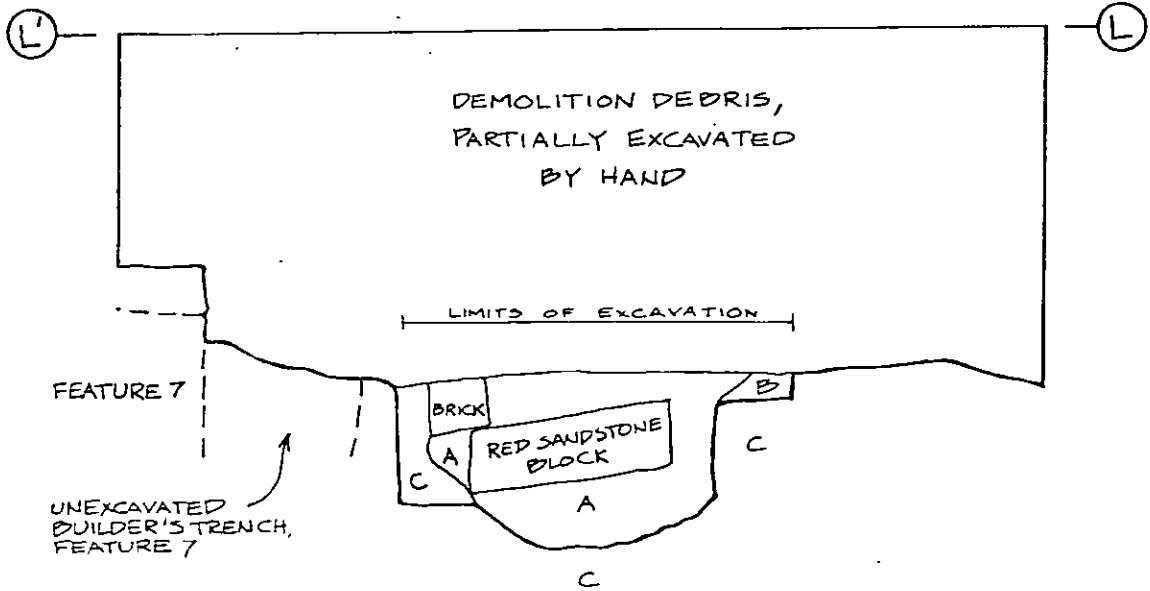 L'
L
DEMOLITION DEBRIS,
PARTIALLY EXCAVATED
BY HAND
LIMITS OF EXCAVATION
FEATURE 7
BRICK
B
RED SANDSTONE
BLOCK
A
C
C
A
UNEXCAVATED
BUILDER'S TRENCH,
FEATURE 7
C